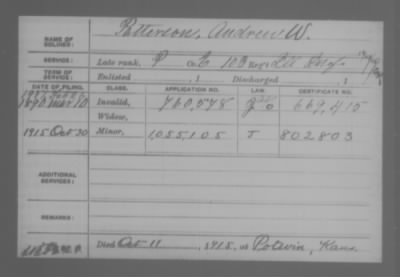 NAME OF SOLDIER: Patterson, Andrew W.
SERVICE: Late rank, P Co. E 103 Reg't Ill Inf.
TERM OF SERVICE: Enlisted , 1 Discharged , 1
DATE OF FILING. CLASS. APPLICATION NO. LAW. CERTIFICATE NO.
1890 Mar 10 Invalid, 760,578 669,415
Widow,
1915 Oct 30 Minor, 1055105 J 802803
ADDITIONAL SERVICES:
REMARKS:
Died Oct 11, 1915, at Potwin, Kans.